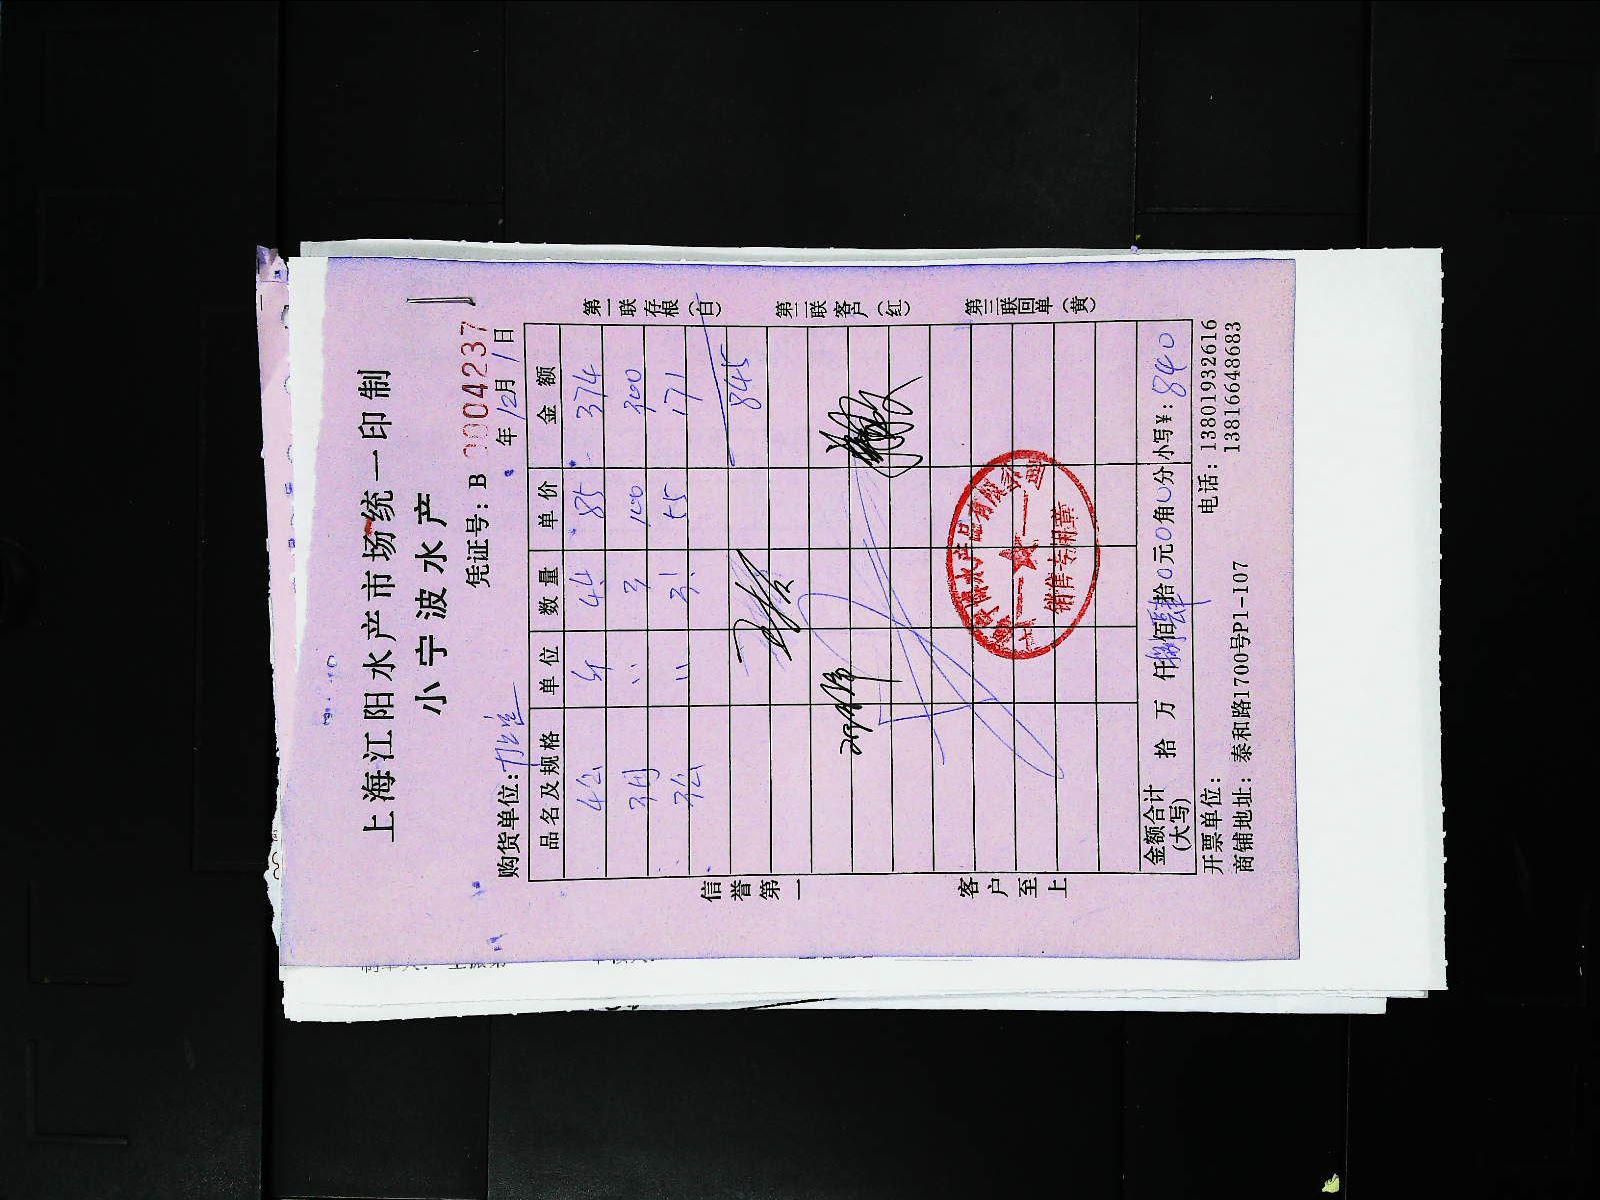 上海江阳水产市场统一印制
小宁波水产
凭证号：B 0004237
购货单位： 年12月1日
品名及规格 单位 数量 单价 金额
4公 斤 4.4 85 374
3两 〃 3 100 300
3公 〃 3.1 55 171
845
金额合计（大写） 拾 万 仟捌佰肆拾0元0角0分 小写¥：840
开票单位： 电话：13801932616
商铺地址：泰和路1700号P1-107 13816648683
信誉第一 客户至上
第一联存根（白） 第二联客户（红） 第三联回单（黄）
水产品有限公司
销售专用章